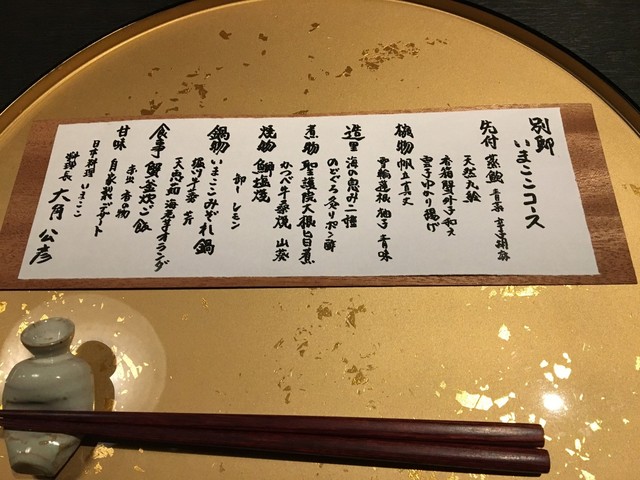 別邸
いまここコース
先付 蒸鮑 青菜 辛子胡麻
天然丸鮃
香箱蟹 外子和え
雲子ゆかり揚げ
椀物 帆立真丈
雪輪蓮根 柚子 青味
造里 海の恵み二種
のどぐろ炙り ポン酢
煮物 聖護院大根旨煮
かつべ牛桑焼 山葵
焼物 鰤塩焼
卸し レモン
鍋物 いまここみぞれ鍋
芹
天恵茹 海老芋オランダ
食事 蟹釜炊ご飯
赤出 香の物
甘味 自家製デザート
日本料理 いまここ
料理長 大月 公彦